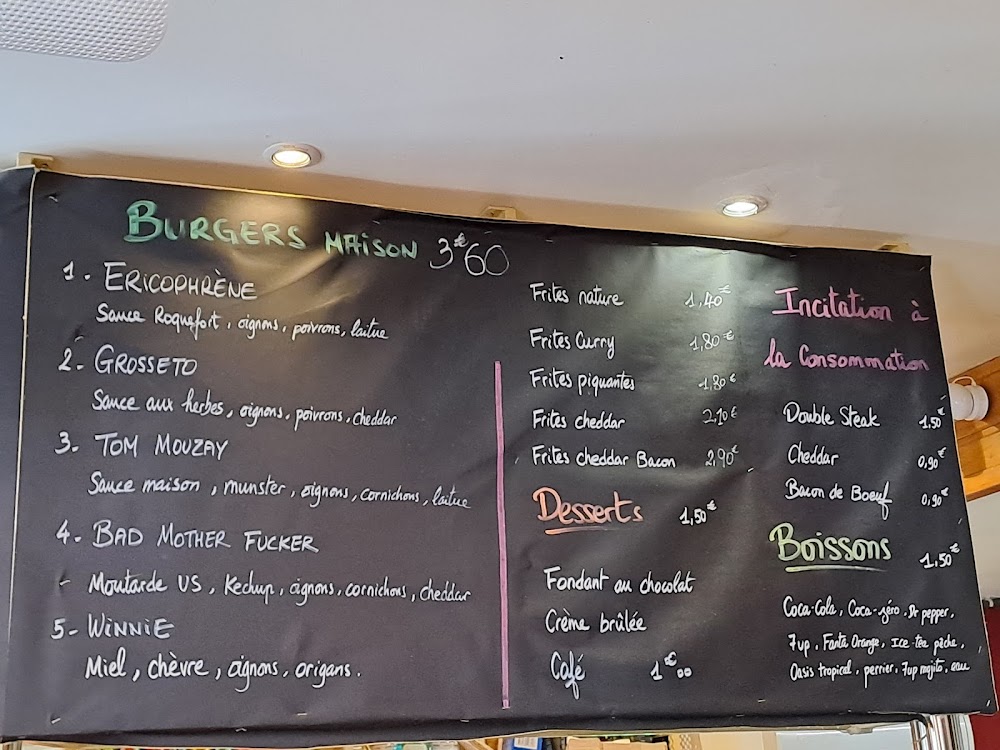 BURGERS MAISON 3€60
1. ERICOPHRÈNE
Sauce Roquefort, oignons, poivrons, laitue
2. GROSSETO
Sauce aux herbes, oignons, poivrons, cheddar
3. TOM MOUZAY
Sauce maison, munster, oignons, cornichons, laitue
4. BAD MOTHER FUCKER
- Moutarde US, Kechup, oignons, cornichons, cheddar
5- WINNIE
Miel, chèvre, oignons, origans.
Frites nature 1,40€
Frites Curry 1,80€
Frites piquantes 1,80€
Frites cheddar 2,10€
Frites cheddar Bacon 2,90€
Desserts 1,50€
Fondant au chocolat
Crème brûlée
Café 1€00
Incitation à
la Consommation
Double Steak 1,50€
Cheddar 0,90€
Bacon de Boeuf 0,90€
Boissons 1,50€
Coca-Cola, Coca-zéro, Dr pepper,
7up, Fanta Orange, Ice-tea pêche,
Oasis tropical, perrier, 7up mojito, eau